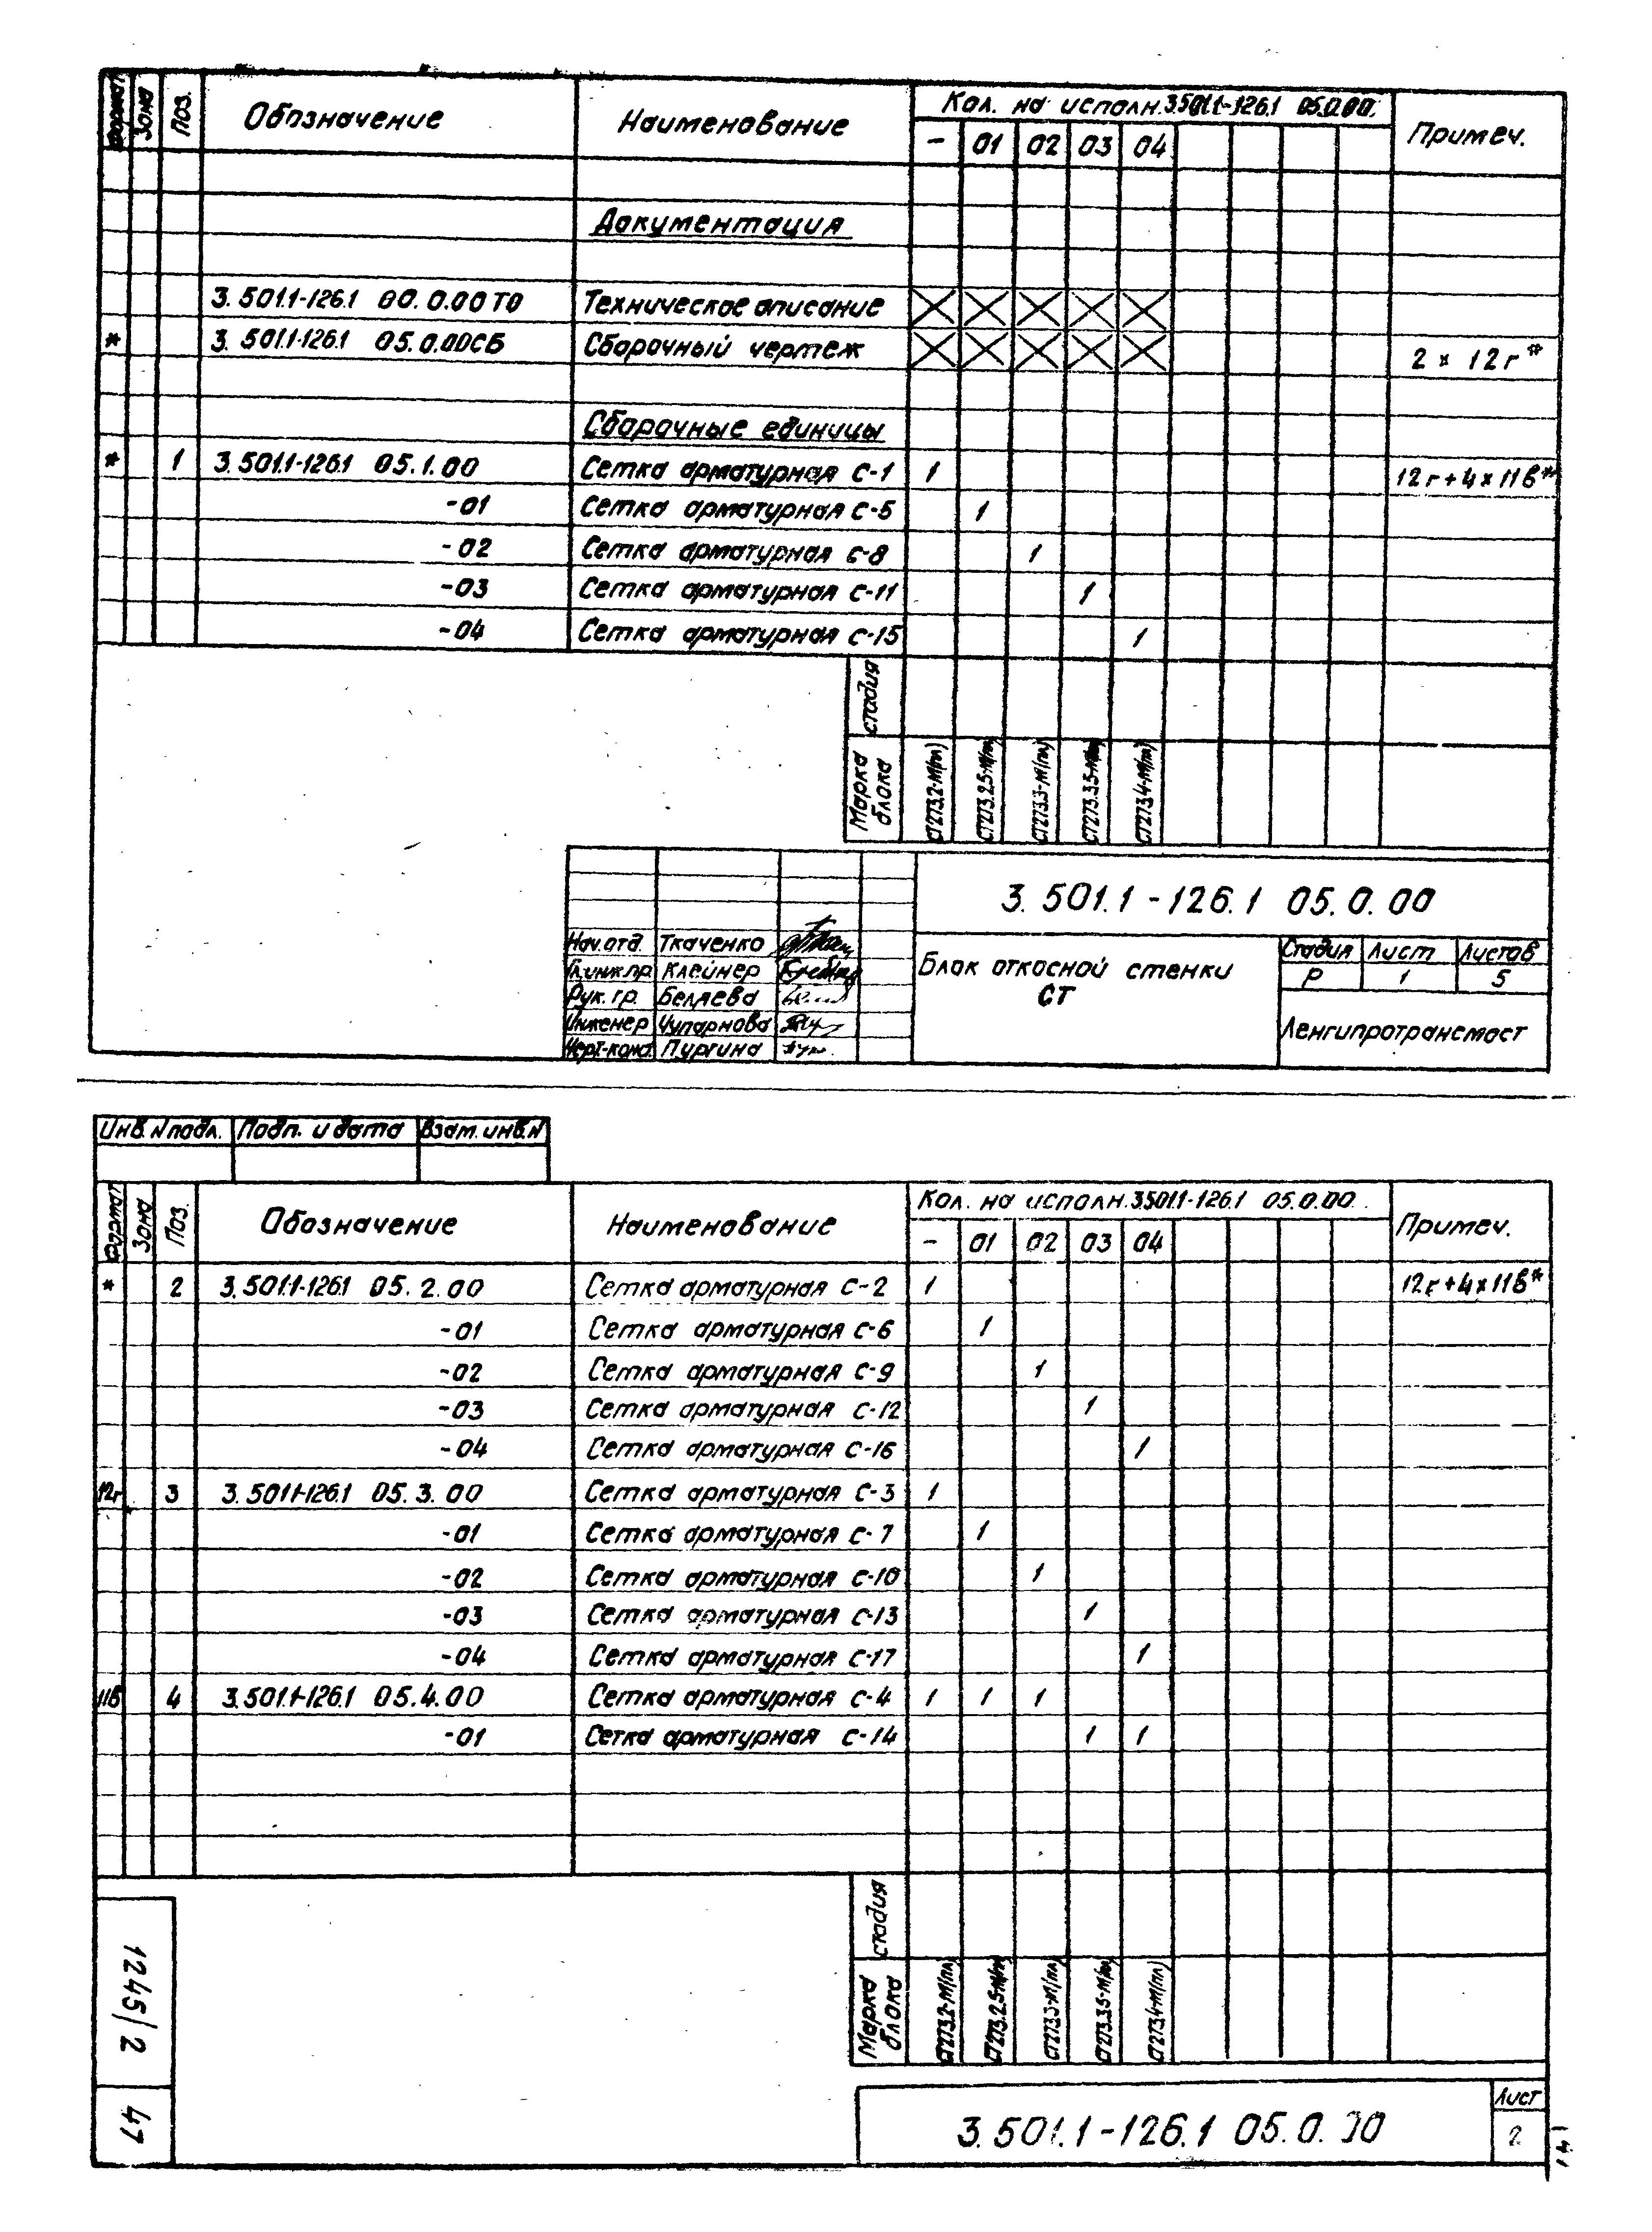 Формат Зона Поз. Обозначение Наименование Кол. на исполн. 3.501.1-126.1 05.0.00. Примеч.
- 01 02 03 04
Документация
3.501.1-126.1 00.0.00 ТО Техническое описание
* 3.501.1-126.1 05.0.00СБ Сборочный чертеж 2 × 12г*
Сборочные единицы
* 1 3.501.1-126.1 05.1.00 Сетка арматурная С-1 1 12г+4×11в*
-01 Сетка арматурная С-5 1
-02 Сетка арматурная С-8 1
-03 Сетка арматурная С-11 1
-04 Сетка арматурная С-15 1
стадия
Марка блока СТ273.2-М(пл) СТ273.2.5-М(пл) СТ273.3-М(пл) СТ273.3.5-М(пл) СТ273.4-М(пл)
3.501.1-126.1 05.0.00
Нач.отд. Ткаченко
Гл.инж.пр. Клейнер
Рук. гр. Беляева
Инженер Чупарнова
Черт-конс. Пургина
Блок откосной стенки
СТ
Стадия Лист Листов
Р 1 5
Ленгипротрансмост
Инв. N подл. Подп. и дата Взам. инв. N
Формат Зона Поз. Обозначение Наименование Кол. на исполн. 3.501.1-126.1 05.0.00. Примеч.
- 01 02 03 04
* 2 3.501.1-126.1 05.2.00 Сетка арматурная С-2 1 12г+4×11в*
-01 Сетка арматурная С-6 1
-02 Сетка арматурная С-9 1
-03 Сетка арматурная С-12 1
-04 Сетка арматурная С-16 1
12г 3 3.501.1-126.1 05.3.00 Сетка арматурная С-3 1
-01 Сетка арматурная С-7 1
-02 Сетка арматурная С-10 1
-03 Сетка арматурная С-13 1
-04 Сетка арматурная С-17 1
11в 4 3.501.1-126.1 05.4.00 Сетка арматурная С-4 1 1 1
-01 Сетка арматурная С-14 1 1
стадия
Марка блока СТ273.2-М(пл) СТ273.2.5-М(пл) СТ273.3-М(пл) СТ273.3.5-М(пл) СТ273.4-М(пл)
1245/2
47
3.501.1-126.1 05.0.00
Лист
2